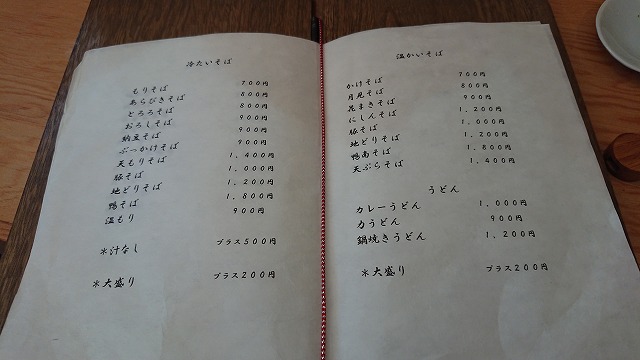 冷たいそば
もりそば 700円
あらびきそば 800円
とろろそば 800円
おろしそば 900円
納豆そば 900円
ぶっかけそば 900円
天もりそば 1,400円
豚そば 1,000円
地どりそば 1,200円
鴨そば 1,800円
温もり 900円
＊汁なし プラス500円
＊大盛り プラス200円
温かいそば
かけそば 700円
月見そば 800円
花まきそば 900円
にしんそば 1,200円
豚そば 1,000円
地どりそば 1,200円
鴨南そば 1,800円
天ぷらそば 1,400円
うどん
カレーうどん 1,000円
力うどん 900円
鍋焼きうどん 1,200円
＊大盛り プラス200円